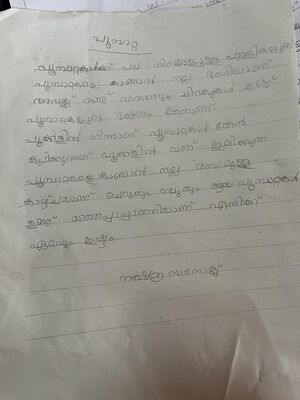 പൂമ്പാറ്റ
പൂമ്പാറ്റകൾക്ക് പല നിറങ്ങളുള്ള പുള്ളികളുണ്ട്
പൂമ്പാറ്റകളെ കാണാൻ നല്ല ഭംഗിയാണ്
അവയ്ക്ക് രണ്ട് ചിറകുകൾ ഉണ്ട്
പൂമ്പാറ്റകളുടെ ഭക്ഷണം തേനാണ്
പൂക്കളിൽ നിന്നാണ് പൂമ്പാറ്റകൾ തേൻ
കുടിക്കുന്നത് പൂക്കളിൽ വന്ന് ഇരിക്കുന്ന
പൂമ്പാറ്റകളെ കാണാൻ നല്ല രസമുള്ള
കാഴ്ചയാണ് ചെറുതും വലുതും ആയ പൂമ്പാറ്റകൾ
ഉണ്ട് മഞ്ഞപ്പാപ്പാത്തിയാണ് എനിക്ക്
ഏറ്റവും ഇഷ്ടം
നക്ഷത്ര